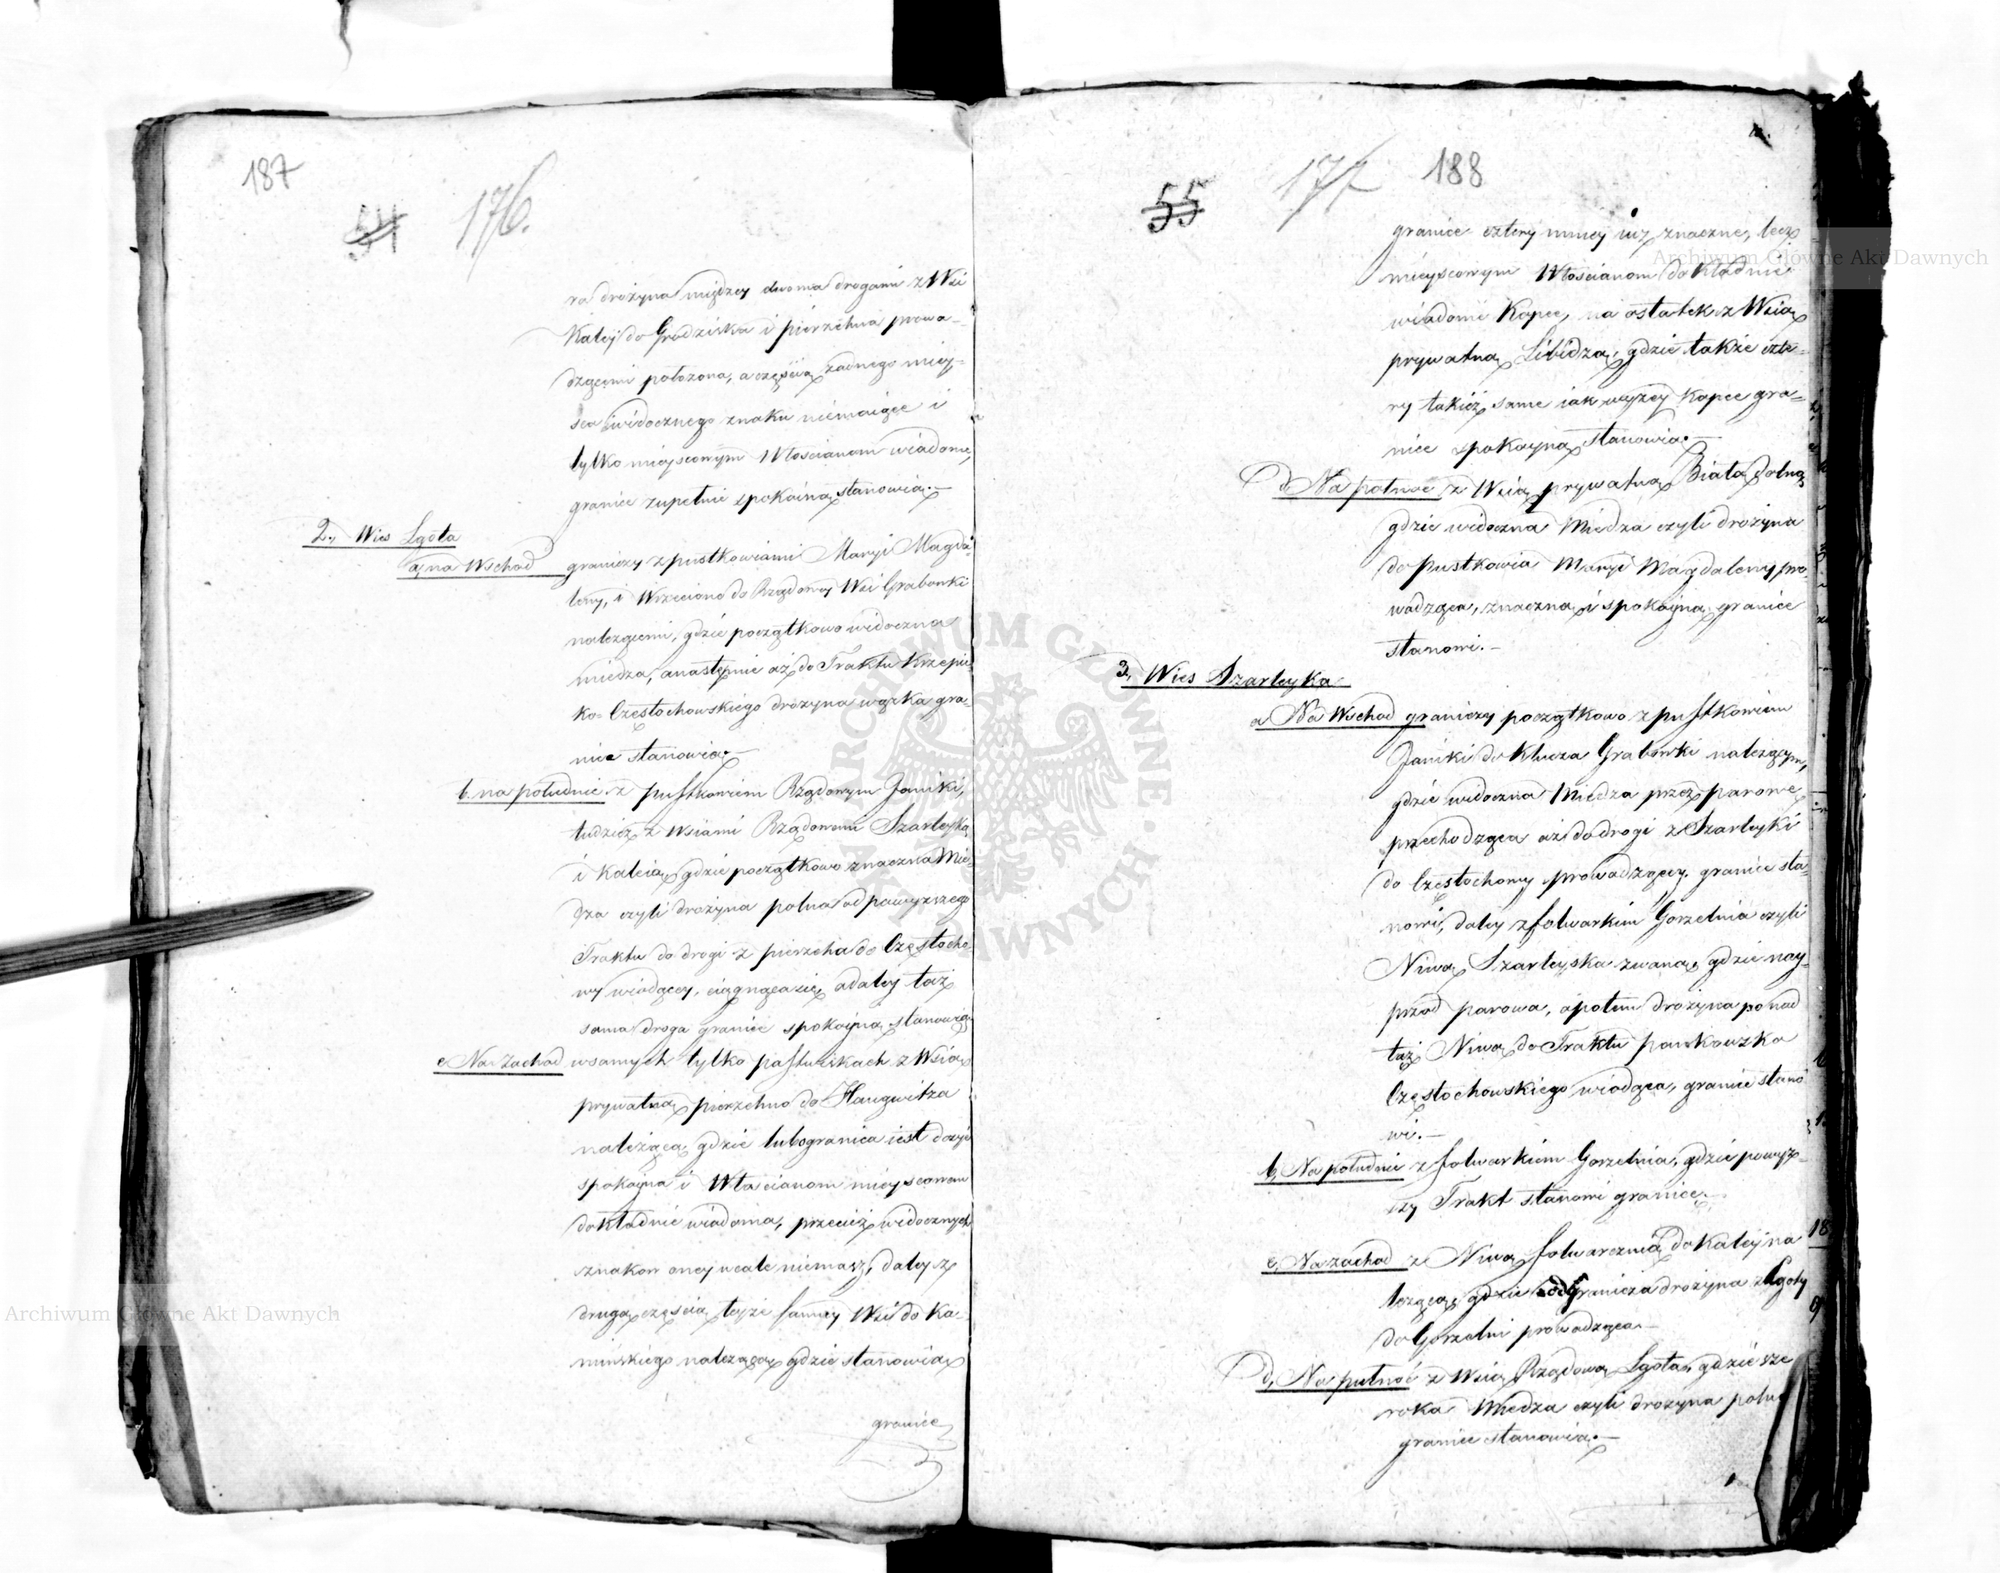 187
54
176.
ra drożyna między dwoma drogami z Wsi
Kaley do Grodziska i pierzchna prowa-
dzącemi położona, a częścią żadnego miey-
sca widocznego znaku niemaiące i
tylko mieyscowym Włościanom wiadome,
granice zupełnie spokoiną stanowią.—
2, Wieś Lgota
a, na Wschod graniczy z pustkowiami Maryi Magda
leny, i Wrzeciono do Rządowey Wsi Grabowki
należącemi, gdzie początkowo widoczna
miedza, a następnie aż do Traktu Krzepic
ko-Częstochowskiego drożyna wązka gra-
nice stanowią.—
b. na południe z pustkowiem Rządowym Janiki,
tudzież z Wsiami Rządowemi Szarleyką
i Kaleią, gdzie początkowo znaczna Mie-
dza czyli drożyna polna od powyzszego
Traktu do drogi z pierzchna do Częstocho
wy wiodącey, ciągnąca się, a daley taż
sama droga granice spokoyną stanowią
c Na Zachod w samych tylko pastwikach z Wsią
prywatną pierzchno do Haugwitza
należącą gdzie lubo granica iest dosyć
spokoyna i Włościanom mieyscowem
dokładnie wiadoma, przecież widocznych
znakow oney wcale niemasz, daley z
drugą częścią teyże samey Wsi do Ka-
mińskiego należącą gdzie stanowią
granice
55
177
188
granice cztery mniey iuż znaczne, lecz
mieyscowym Włościanom dokładnie
wiadome Kopce, na ostatek z Wsią
prywatną Libidzą, gdzie także czte-
ry takież same iak wyżey Kopce gra-
nice spokoyną stanowią.—
d. Na połnoc z Wsią prywatną Białą dolną
gdzie widoczna Miedza czyli drożyna
do pustkowia Maryi Magdaleny pro-
wadząca, znaczną i spokoyną granice
stanowi.—
3, Wieś Szarleyka
a Na Wschod graniczy początkowo z pustkowiem
Janiki do Klucza Grabowki należącym,
gdzie widoczna Miedza przez parowę
przechodząca aż do drogi z Szarleyki
do Częstochowy prowadzącey granice sta-
nowi, daley z folwarkiem Gorzelnia czyli
Niwą Szarleyska zwaną, gdzie nay-
przod parowa, a potem drożyna ponad
też Niwą do Traktu pankowsko
Częstochowskiego wiodąca, granice stano
wi.—
b, Na południe z folwarkiem Gorzelnia, gdzie powyż-
szy Trakt stanowi granice.—
c, Na zachod z Niwą folwarczną do Kaley na
leżącą, gdzie odgranicza drożyna z Lgoty
do Gorzelni prowadząca.—
d, Na połnoc z Wsią Rządową Lgota, gdzie sze
roka Miedza czyli drożyna polna
granice stanowią.—
18
Archiwum Główne Akt Dawnych
Archiwum Główne Akt Dawnych
ARCHIWUM GŁÓWNE AKT DAWNYCH